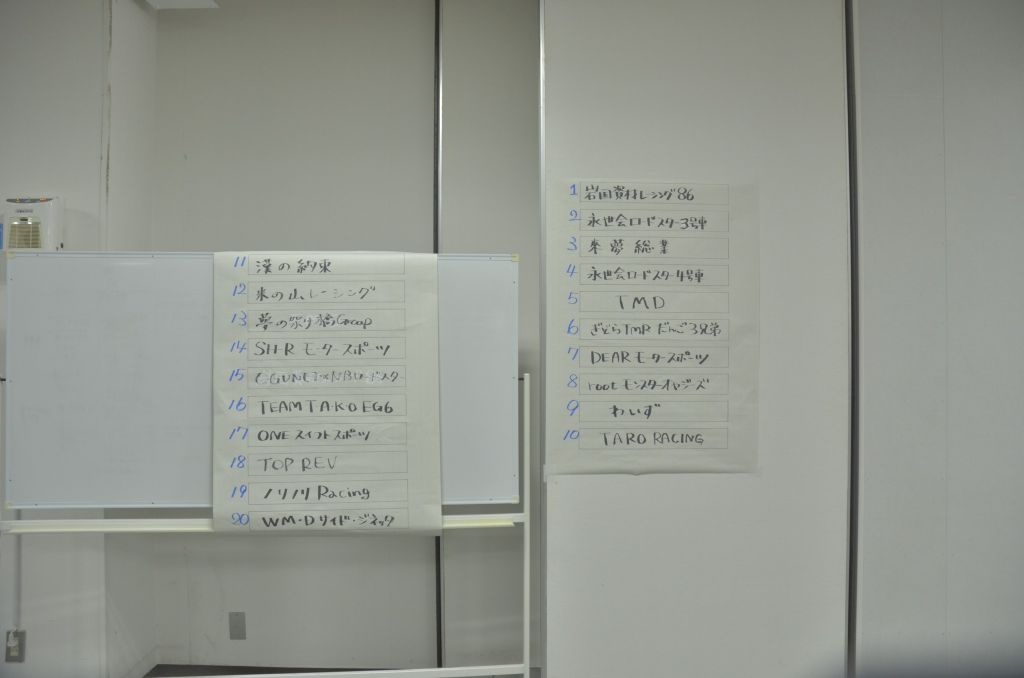 1 岩国資材レーシング86
2 永世会ロードスター3号車
3 来夢総業
4 永世会ロードスター4号車
5 TMD
6 ぎどらTMRだんご3兄弟
7 DEARモータースポーツ
8 rootモンスターオヤジーズ
9 わいず
10 TARO RACING
11 漢の約束
12 米の山レーシング
13 夢の
14 SHR モータースポーツ
15 ロードスター
16 TEAM TAKO EG6
17 ONE スイフトスポーツ
18 TOP REV
19 ノリノリ Racing
20 WM・Dリイド・ジネッタ